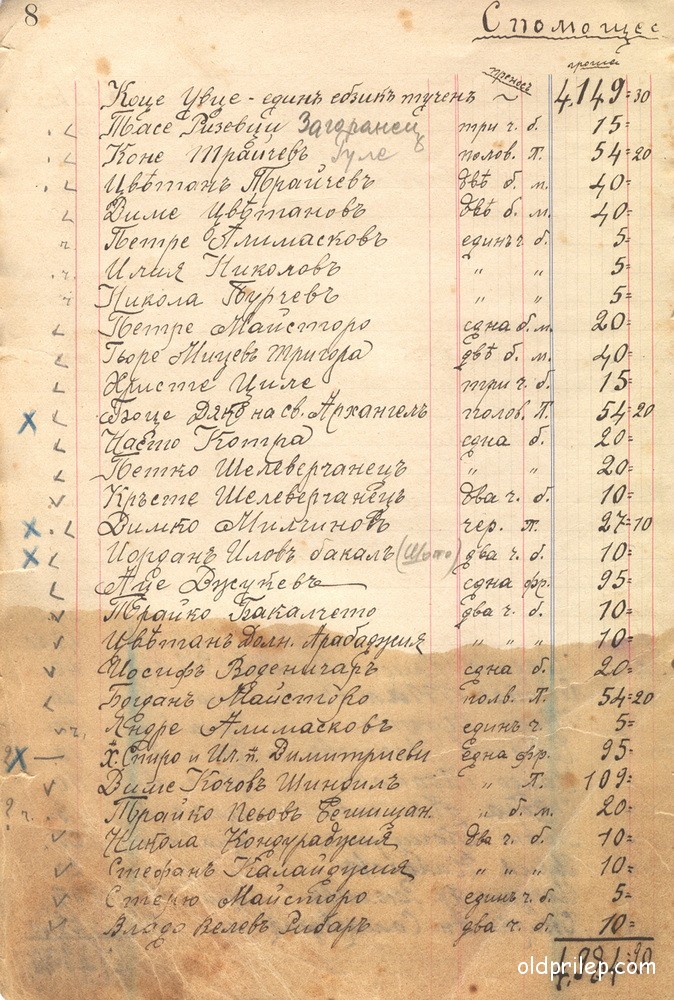 8
Спомощес
гроша
Коце Увце - единъ езикъ тученъ пренесъ 4149=30
Тасе Ризевци Загоранецъ три ч. б. 15=
Коне Трайчевъ Гуле полов. Л. 54=20
Цвѣтанъ Трайчевъ двѣ б. м. 40=
Диме Цвѣтановъ двѣ б. м. 40=
Петре Алимасковъ единъ ч. б. 5=
Илия Николовъ " " 5=
Никола Бурчевъ " " 5=
Петре Майсторо една б. м. 20=
Гьоре Мицев Тригора двѣ б. м. 40=
Христе Циле три ч. б. 15=
Боце на св. Архангелъ полов. Л. 54=20
Насто Котра една б. 20=
Петко Шелеверчанецъ " " 20=
Кръсте Шелеверчанецъ два ч. б. 10=
Димко чер. л. 27=10
Йорданъ Иловъ бакалъ (Шото) два ч. б. 10=
Аце една фр. 95=
Трайко Бакалчето два ч. б. 10=
Цвѣтанъ Долн. Арабаджия " " " 10=
Йосифъ Воденичаръ една б. 20=
Богданъ Майсторо полв. Л. 54=20
Андре Алимасковъ единъ ч. 5=
Х. Спиро и Ил. п. Димитриеви Една фр. 95=
Диме Кочовъ Шиндилъ " Л. 109=
Трайко " б. м. 20=
Никола Кондураджия два ч. б. 10=
Стефанъ Калайджия " " " 10=
Стерю Майсторо единъ ч. б. 5=
Владо Велевъ Рибаръ два ч. б. 10=
oldprilep.com